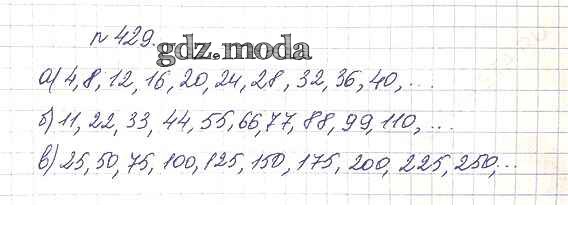 № 429.
gdz.moda
а) 4, 8, 12, 16, 20, 24, 28, 32, 36, 40, ...
б) 11, 22, 33, 44, 55, 66, 77, 88, 99, 110, ...
в) 25, 50, 75, 100, 125, 150, 175, 200, 225, 250, ...